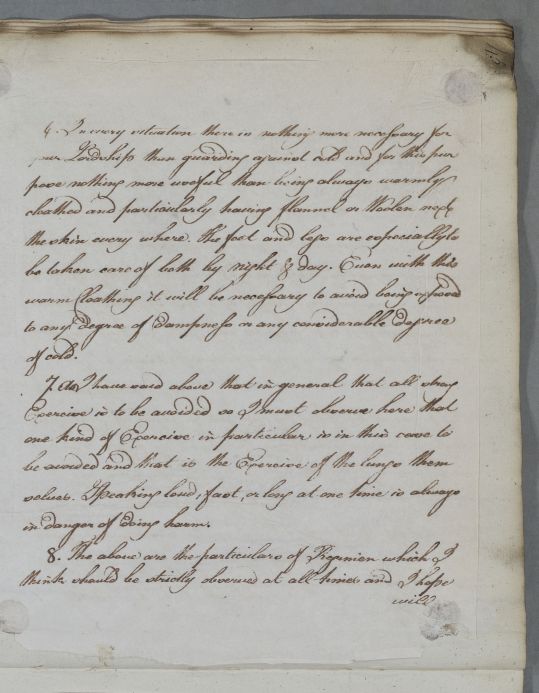 6. In every situation there is nothing more necessary for
your Lordship than guarding against cold and for this pur
pose nothing more useful than being always warmly
cloathed and particularly having flannel or Woolen next
the skin every where. The feet and legs are especially to
be taken care of both by night & day. Even with this
warm Cloathing it will be necessary to avoid being exposed
to any degree of dampness or any considerable degree
of cold.
7. As I have said above that in general that all strong
Exercise is to be avoided so I must observe here that
one kind of Exercise in particular is in this case to
be avoided and that is the Exercise of the lungs them
selves. Speaking loud, fast, or long at one time is always
in danger of doing harm.
8. The above are the particulars of Regimen which I
think should be strictly observed at all times and I hope
will